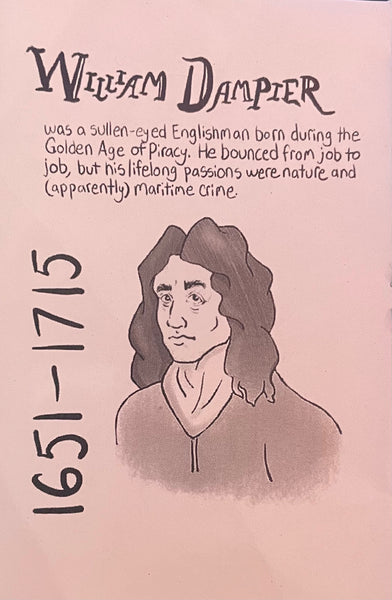 William Dampier
was a sullen-eyed Englishman born during the
Golden Age of Piracy. He bounced from job to
job, but his lifelong passions were nature and
(apparently) maritime crime.
1651-1715